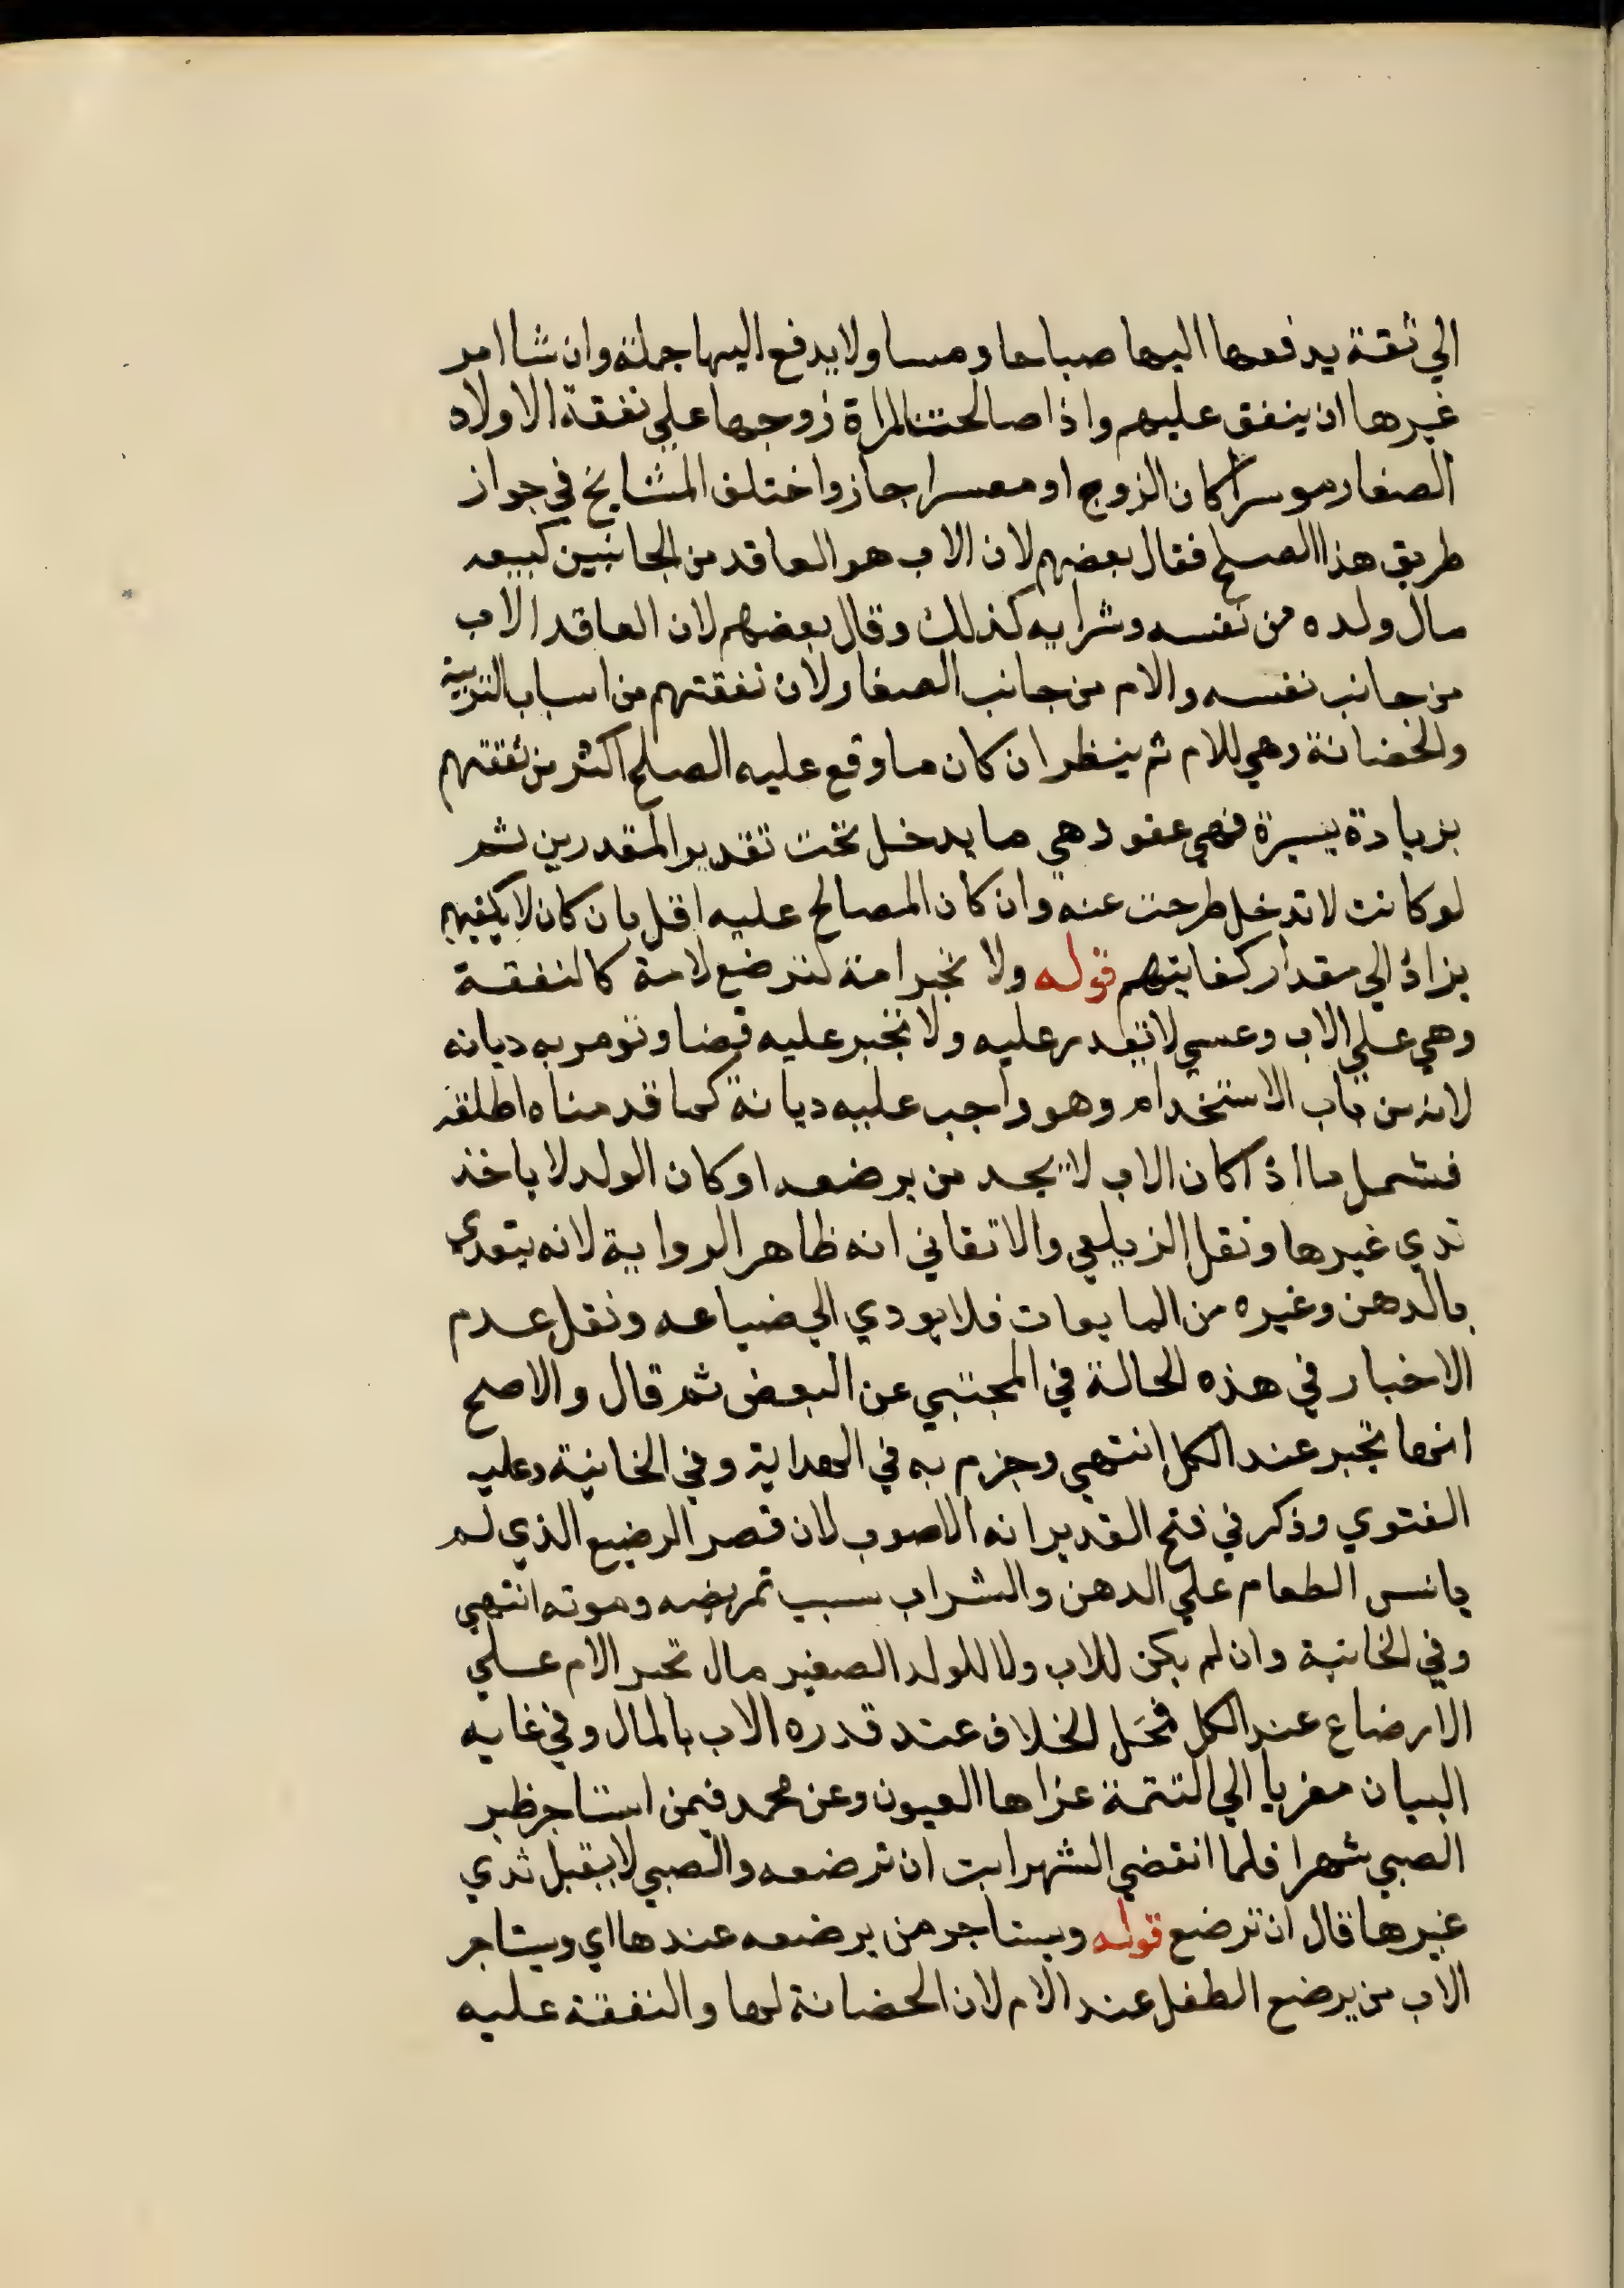 الي ثقة يدفعها اليها صباحا ومسا ولا يدفع اليها جملة وان شا امر
غيرها ان ينفق عليهم واذا صالحت المراة زوجها علي نفقة الاولاد
الصغار موسرا كان الزوج او معسرا جاز واختلف المشايخ في جواز
طريق هذا الصلح فقال بعضهم لان الاب هو العاقد من الجانبين كبيعه
مال ولده من نفسه وشرايه كذلك وقال بعضهم لان العاقد الاب
من جانب نفسه والام من جانب الصغار لان نفقتهم من اسباب التربية
والحضانة وهي للام ثم ينظر ان كان ما وقع عليه الصلح اكثر من نفقتهم
بزيادة يسيرة فهي عفو وهي ما يدخل تحت تقدير المقدرين ثم
لو كانت لا تدخل طرحت عنه وان كان المصالح عليه اقل بان كان لا يكفيهم
يزاد الي مقدار كفايتهم قوله ولا تجبر امه لترضع لامة كالنفقة
وهي علي الاب وعسي لا تقدر عليه ولا تجبر عليه قضا وتومر به ديانه
لانه من باب الاستخدام وهو واجب عليه ديانة كما قدمناه اطلقه
فشمل ما اذا كان الاب لا يجد من يرضعه او كان الولد لا ياخذ
ثدي غيرها ونقل الزيلعي والاتقاني انه ظاهر الرواية لانه يتغدي
بالدهن وغيره من المايعات فلا يودي الي ضياعه ونقل عدم
الاخبار في هذه الحالة في المجتبي عن البعض ثم قال والاصح
انها تجبر عند الكل انتهي وجزم به في الهداية وفي الخانية وعليه
الفتوي وذكر في فتح القدير انه الاصوب لان قصر الرضيع الذي لم
يانس الطعام علي الدهن والشراب سبب تمريضه وموته انتهي
وفي الخانية وان لم يكن للاب ولا للولد الصغير مال تجبر الام علي
الارضاع عند الكل فمحل الخلاف عند قدره الاب بالمال وفي غايه
البيان معزيا الي التتمة عزاها العيون وعن محمد فيمن استاجر ظير
الصبي شهرا فلما انقضي الشهر ابت ان ترضعه والصبي لا يقبل ثدي
غيرها قال ان ترضع قوله ويستاجر من يرضعه عندها اي ويستاجر
الاب من يرضع الطفل عند الام لان الحضانة لها والنفقة عليه